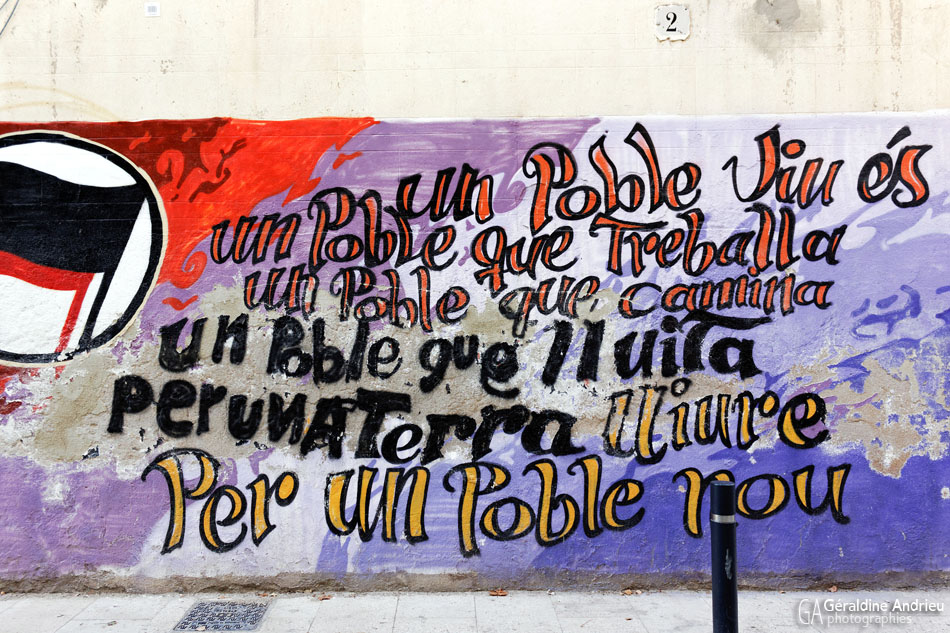 2
un Poble Viu és
un Poble que Treballa
un Poble que camina
un Poble que lluita
per una Terra lliure
Per un Poble nou
GA Géraldine Andrieu
photographies